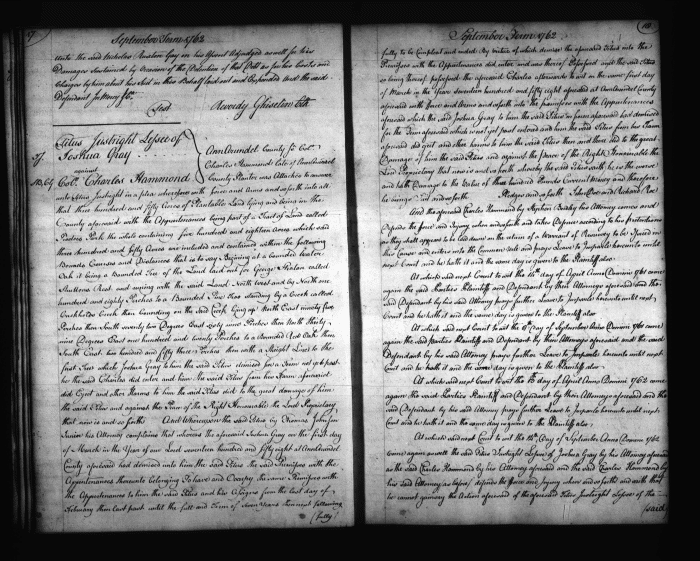 9
September Term 1762
unto the said Nicholas Ruxton Gay in his Assent Adjudged as well for his
Damages Sustained by Occasion of the Detention of that Debt as for his Costs and
Charges by him about his Suit in this Behalf laid out and Expended And the said
Defendant in Mercy &c.
Test Reverdy Ghiselin Clk
Titus Justright Lessee of
Joshua Gray
against
Col. Charles Hammond
Ann Arundel County sc. Col.
Charles Hammond late of Ann Arundel
County Planter was Attached to answer
unto Titus Justright in a plea wherefore with force and Arms and so forth into all
that three hundred and fifty Acres of Plantable Land lying and being in the
County aforesaid with the Appurtenances being part of a Tract of Land called
Park the whole containing five hundred and eighteen Acres which said
three hundred and fifty Acres are included and contained within the following
Bounds Courses and Distances that is to say Begining at a bounded water
Oak it being a Bounded Tree of the Land laid out for George called
Rest and runing with the said Land North West and by North one
hundred and eighty Perches to a Bounded Tree standing by a Creek called
Creek then bounding on the said Creek and up North East ninety five
Perches then South seventy two Degrees East sixty nine Perches then North Thirty
nine Degrees East one hundred and twenty Perches to a Bounded Red Oak then
South East two hundred and fifty three Perches then with a Straight Line to the
first Tree which Joshua Gray to him the said Titus demised for a Term not yet past
he the said Charles did enter and him the said Titus from his Farm aforesaid
did Eject and other Harms to him the said Titus did to the great damage of him
the said Titus and against the Peace of the Right Honourable the Lord Proprietary
that now is and so forth And Whereupon the said Titus by Thomas Johnson
Junior his Attorney complains that whereas the aforesaid Joshua Gray on the first day
of March in the Year of our Lord seventeen hundred and fifty eight at Ann Arundel
County aforesaid had demised unto him the said Titus the said Premisses with the
Appurtenances thereunto belonging To have and Occupy the same Premisses with
the Appurtenances to him the said Titus and his Assigns from the last day of
February then last past until the full end Term of Seven Years then next following
(fully)
10
September Term 1762
fully to be Compleat and ended By virtue of which demise the aforesaid Titus into the
Premisses with the Appurtenances did enter and was thereof Possessed and the said Titus
so being thereof possessed the aforesaid Charles afterwards to wit on the same first day
of March in the Year seventeen hundred and fifty eight aforesaid at Ann Arundel County
aforesaid with Force and Arms and so forth into the premisses with the Appurtenances
aforesaid which the said Joshua Gray to him the said Titus in form aforesaid had demised
for the Term aforesaid which is not yet past entered and him the said Titus from his Farm
aforesaid did eject and other harms to him the said Titus then and there did to the great
Damage of him the said Titus and against the peace of the Right Honourable the
Lord Proprietary that now is and so forth whereby the said Titus saith he is the worse
and hath Damage to the Value of three hundred Pounds Current Money and therefore
he brings suit and so forth Pledges and so forth John Doe and Richard Roe
And the aforesaid Charles Hammond by Stephen Bordley his Attorney comes and
Defends the force and Injury when and so forth and takes Defence according to his
as they shall appear to be laid down in the return of a Warrant of Resurvey to be Issued in
this Cause and enters into the Common Rule and prays Leave to Imparle hereunto until
next Court and he hath it and the same day is given to the Plaintiff also
At which said next Court to wit the 14th day of April Anno Domini 1761 came
again the said Parties Plaintiff and Defendant by their Attorneys aforesaid and the
said Defendant by his said Attorney prays further Leave to Imparle hereunto until next
Court and he hath it and the same day is given to the Plaintiff also
At which said next Court to wit the 8th day of September Anno Domini 1761 came
again the said Parties Plaintiff and Defendant by their Attorneys aforesaid and the said
Defendant by his said Attorney prays further Leave to Imparle hereunto until next
Court and he hath it and the same day is given to the Plaintiff also
At which said next Court to wit the day of April Anno Domini 1762 came
again the said Parties Plaintiff and Defendant by their Attorneys aforesaid and the
said Defendant by his said Attorney prays further Leave to Imparle hereunto until next
Court and he hath it and the same day is given to the Plaintiff also
At which said next Court to wit the 14th day of September Anno Domini 1762
came again as well the said Titus Justright Lessee of Joshua Gray by his Attorney aforesaid
as the said Charles Hammond by his Attorney aforesaid and the said Charles Hammond by
his said Attorney as before defends the force and Injury when and so forth and saith that
he cannot gainsay the Action aforesaid of the aforesaid Titus Justright Lessee of the
(said